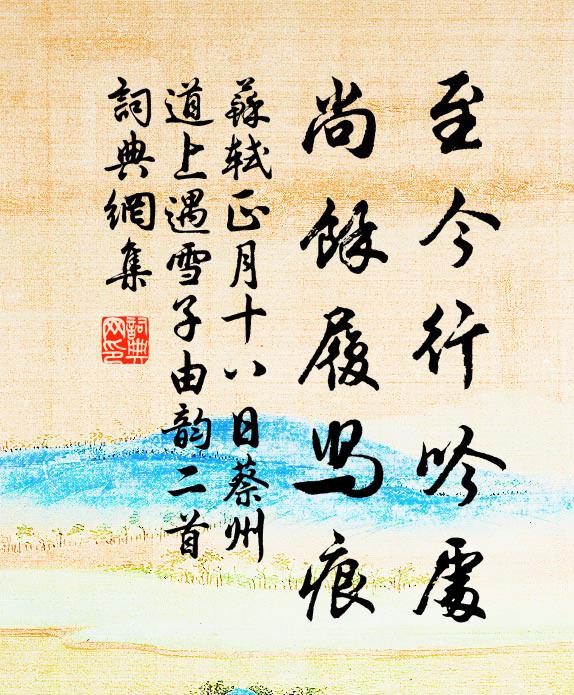 至今行吟處
尚餘履舄痕
蘇軾正月十八日蔡州
道上遇雪子由韵二首
詞典網集
詞典网印